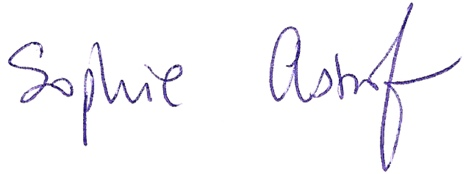 Sophie Astrof